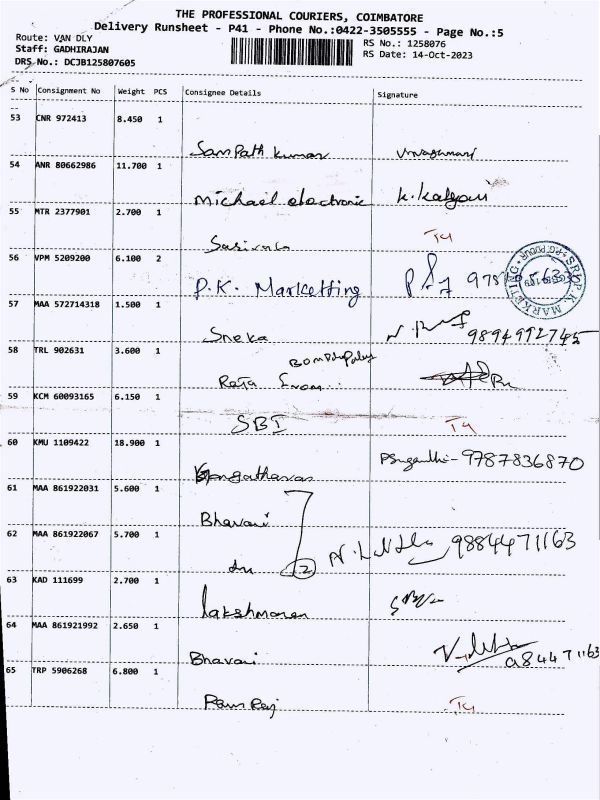 THE PROFESSIONAL COURIERS, COIMBATORE
Delivery Runsheet - P41 - Phone No.:0422-3505555 - Page No.:5
Route: VAN DLY
Staff: GADHIRAJAN
DRS No.: DCJB125807605
RS No.: 1258076
RS Date: 14-Oct-2023
S No Consignment No Weight PCS Consignee Details Signature
53 CNR 972413 8.450 1
SamPath kumar
54 ANR 80662986 11.700 1
Michael electronic K. Kalyani
55 MTR 2377901 2.700 1
56 VPM 5209200 6.100 2
P.K. Marketting
57 MAA 572714318 1.500 1
Sneka 9894992745
58 TRL 902631 3.600 1
Raja
59 KCM 60093165 6.150 1
SBI
60 KMU 1109422 18.900 1
9787836870
61 MAA 861922031 5.600 1
Bhavani
62 MAA 861922067 5.700 1
2 9884471163
63 KAD 111699 2.700 1
lakshmanan
64 MAA 861921992 2.650 1
Bhavani
65 TRP 5906268 6.800 1
Ram Raj